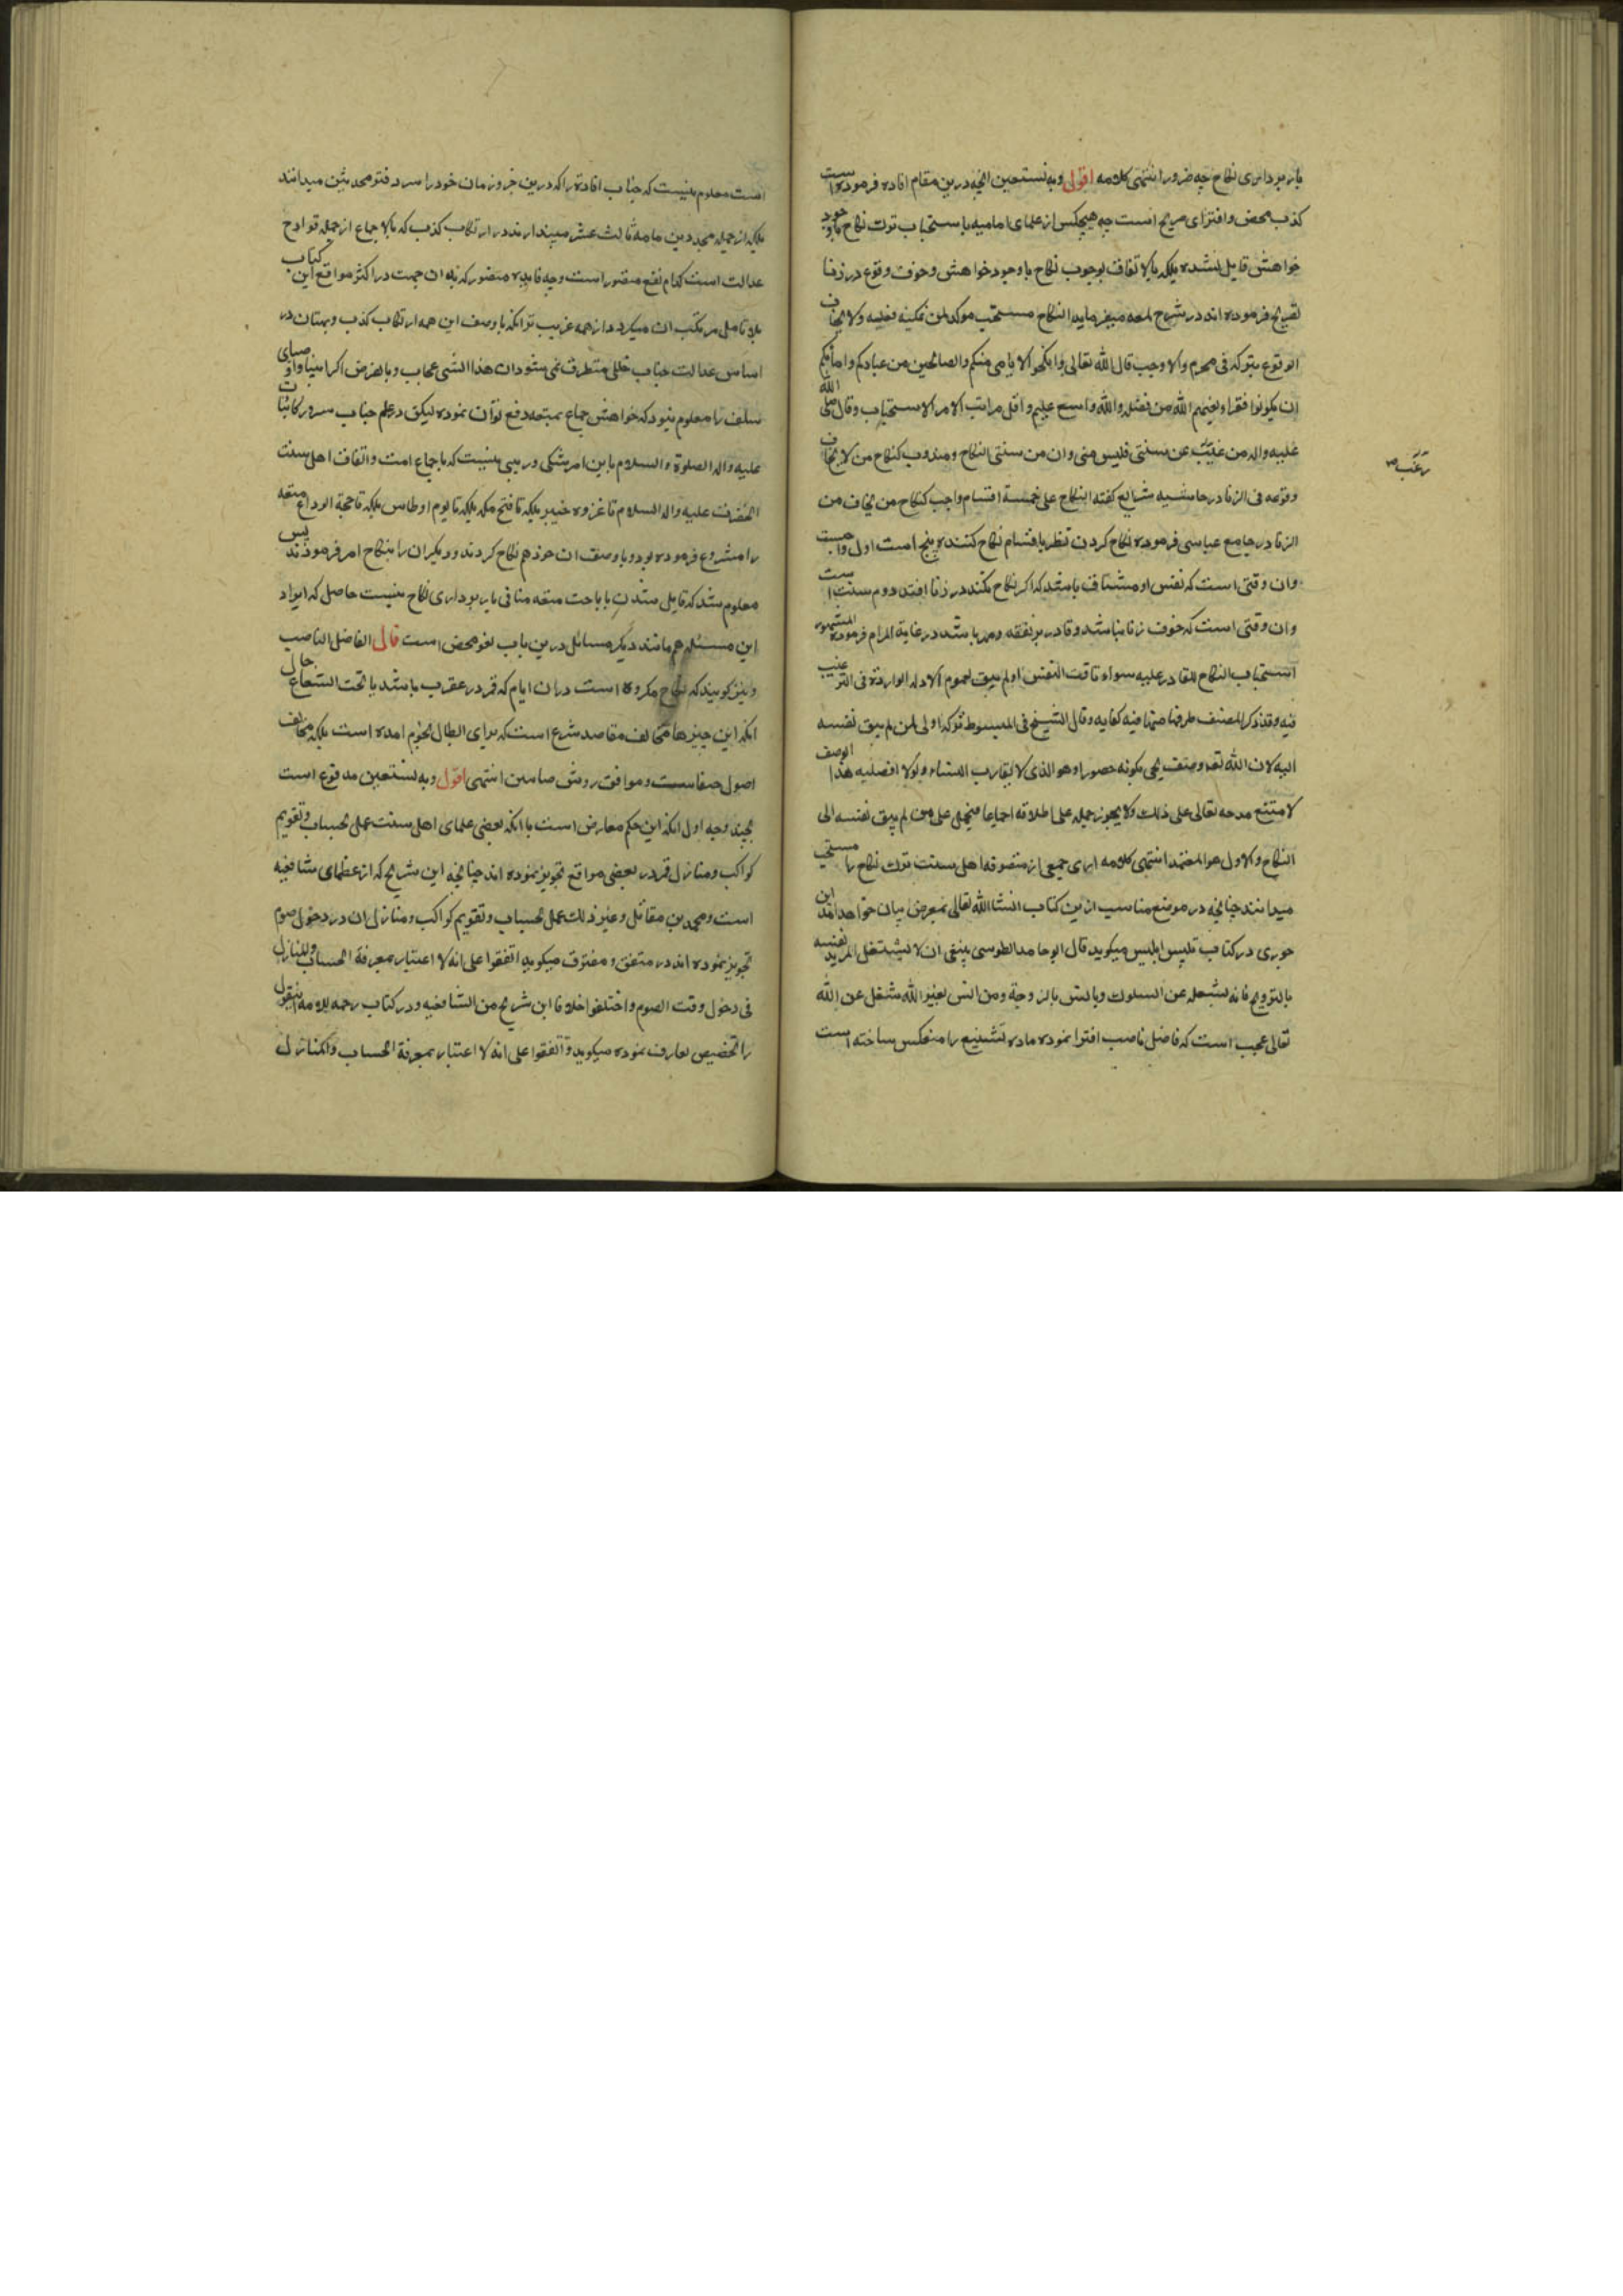 باربرداری نکاح چه ضرور انتهی کلامه اقول وبه نستعین انچه درین مقام افاده فرموده است
کذب محض وافترای صریح است چه هیچکس از علمای امامیه باستحباب ترک نکاح باوجود
خواهش قایل نشده بلکه بالاتفاق بوجوب نکاح باوجود خواهش وخوف وقوع در زنا
تصریح فرموده اند در شرح لمعه میفرماید النکاح مستحب موکد لمن یمکنه فعله ولا یخاف
الوقوع بترکه فی محرم والا وجب قال الله تعالی وانکحوا الایامی منکم والصالحین من عبادکم وامائکم
ان یکونوا فقراء یغنیهم الله من فضله والله واسع علیم واقل مراتب الامر الاستحباب وقال صلی الله
علیه واله من رغب عن سنتی فلیس منی وان من سنتی النکاح ومندوب کنکاح من لا یخاف
وقوعه فی الزنا در حاشیه شرایع گفته النکاح علی خمسة اقسام واجب کنکاح من یخاف من
الزنا در جامع عباسی فرموده نکاح کردن نظر باقسام نکاح کننده پنج است اول واجبست
وان وقتی است که نفس او مشتاق باشد که اکر نکاح نکند در زنا افتد دوم سنت است
وان وقتی است که خوف زنا نباشد وقادر بر نفقه ومهر باشد در غایة المرام فرموده المشهور
استحباب النکاح للقادر علیه سواء تاقت النفس او لم یتق لعموم الادله الواردة فی الترغیب
فیه وقد ذکر المصنف طرفا منها فیه کفایه وقال الشیخ فی المبسوط ترکه اولی لمن لم یتق نفسه
الیه لان الله تعالی وصف یحیی بکونه حصورا وهو الذی لا یقارب النساء ولولا افضلیه هذا الوصف
لامتنع مدحه تعالی علی ذلک ولا یجوز حمله علی اطلاقه اجماعا فیحمل علی من لم یتق نفسه الی
النکاح والاول هو المعتمد انتهی کلامه اری جمعی از متصوفه اهل سنت ترک نکاح را مستحب
میدانند چنانچه در موضع مناسب ازین کتاب انشا الله تعالی بمعرض بیان خواهد امد ابن
جوزی در کتاب تلبیس ابلیس میکوید قال ابو حامد الطوسی ینبغی ان لا یشتغل المرید نفسه
بالتزویج فانه یشغله عن السلوک ویانس بالزوجة ومن انس بغیر الله شغل عن الله
تعالی عجب است که فاضل ناصب افترا نموده ماده تشنیع را منعکس ساخته است
رغب صح
است معلوم نیست که جناب افادة را که درین جزو زمان خود را سر دفتر محدثین میدانند
بلکه از جمله مجددین مامه ثالث عشر میپندارند در ارتکاب کذب که بالاجماع از جمله قوادح
عدالت است کدام نفع متصور است وچه فایده متصور که بدان جهت در اکثر مواقع این کتاب
بلا تامل مرتکب ان میکردد از همه غریب تر انکه باوصف این همه ارتکاب کذب وبهتان در
اساس عدالت جناب خللی متطرق نمی شود ان هذا الشی عجاب وبالفرض اکر انبیا واوصیای
سلف را معلوم نبود که خواهش جماع بمتعه دفع توان نموده لیکن در علم جناب سرور کاینات
علیه واله الصلوة والسلام باین امر شکی وریبی نیست که باجماع امت واتفاق اهل سنت
انحضرت علیه واله السلام تا غزوه خیبر بلکه تا فتح مکه بلکه تا یوم اوطاس بلکه تا حجة الوداع متعه
را مشروع فرموده بود وباوصف ان خود هم نکاح کردند ودیکران را بنکاح امر فرمودند پس
معلوم شد که قایل شدن باباحت متعه منافی باربرداری نکاح نیست حاصل که ایراد
این مسئله هم مانند دیکر مسائل درین باب لغو محض است قال الفاضل الناصب
ونیز کویند که نکاح مکروه است دران ایام که قمر در عقرب باشد یا تحت الشعاع حال
انکه این چیزها مخالف مقاصد شرع است که برای ابطال نجوم امده است بلکه مخالف
اصول حنفاست وموافق روش صابئین انتهی اقول وبه نستعین مدفوع است
بچند وجه اول انکه این حکم معارض است با انکه بعضی علمای اهل سنت عمل بحساب وتقویم
کواکب ومنازل قمر در بعضی مواقع تجویز نموده اند چنانچه ابن شریح که از عظمای شافعیه
است ومحمد بن مقاتل وغیر ذلک عمل بحساب وتقویم کواکب ومنازل ان در دخول صوم
تجویز نموده اند در متفق ومفترق میکوید اتفقوا علی انه لا اعتبار بمعرفة الحساب والمنازل
فی دخول وقت الصوم واختلفوا خلافا ابن شریح من الشافعیه ودر کتاب رحمه للامه این قول
را تخصیص بعارف نموده میکوید واتفقوا علی انه لا اعتبار بمعرفة الحساب والمنازل